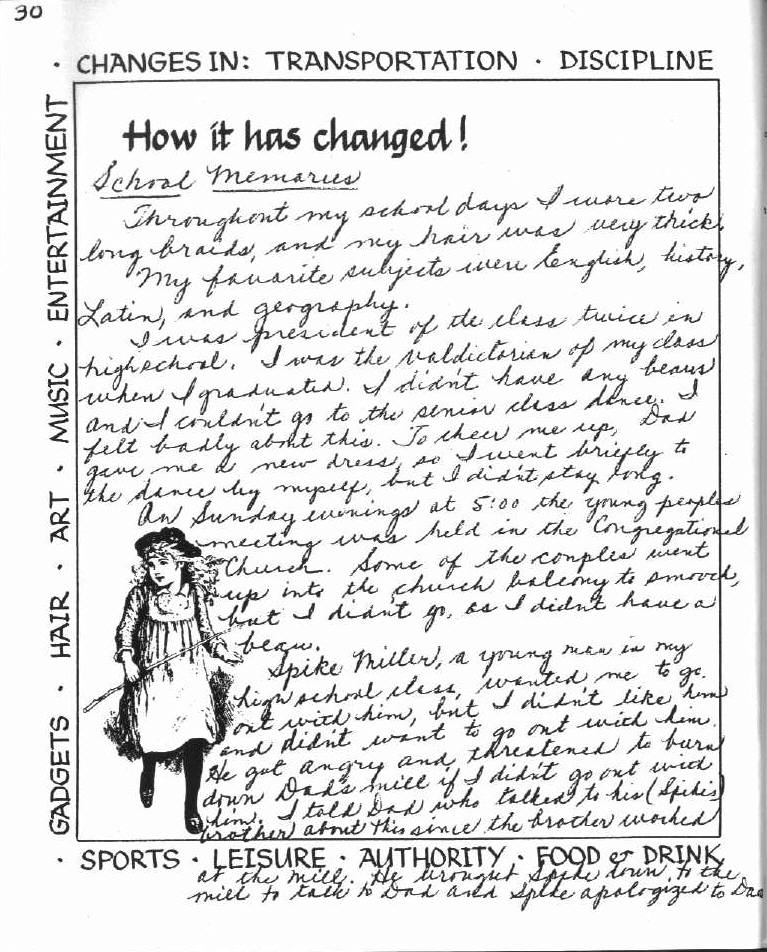 30
· CHANGES IN: TRANSPORTATION · DISCIPLINE
GADGETS · HAIR · ART · MUSIC · ENTERTAINMENT
How it has changed!
School Memories
Throughout my school days I wore two
long braids, and my hair was very thick.
My favorite subjects were English, history,
Latin, and geography.
I was president of the class twice in
highschool. I was the valdictorian of my class
when I graduated. I didn't have any beaus
and I couldn't go to the senior class dance. I
felt badly about this. To cheer me up, Dad
gave me a new dress, so I went briefly to
the dance by myself, but I didn't stay long.
On Sunday evenings at 5:00 the young peoples
meeting was held in the Congregational
Church. Some of the couples went
up into the church balcony to smooch,
but I didn't go, as I didn't have a
beau.
Spike Miller, a young man in my
high school class, wanted me to go
out with him, but I didn't like him
and didn't want to go out with him.
He got angry and threatened to burn
down Dad's mill if I didn't go out with
him. I told Dad who talked to his (Spike's)
brother about this since the brother worked
· SPORTS · LEISURE · AUTHORITY · FOOD & DRINK
at the mill. He brought Spike down to the
mill to talk to Dad and Spike apologized to Dad